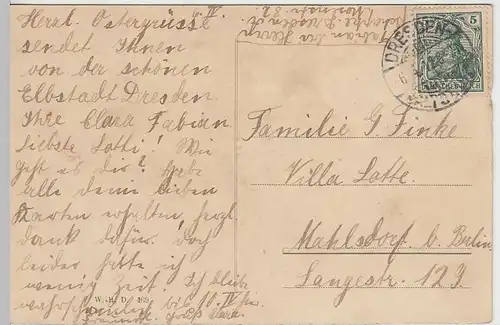 6. IV.
Herzl. Ostergrüsse
sendet Ihnen
von der schönen
Elbstadt Dresden
Ihre Clara Fabian.
Liebste Lotti! Wie
geht es dir? Habe
alle deine lieben
Karten erhalten herzl.
dank dafür. doch
leider hatte ich
wenig Zeit. Ich bleibe
wahrscheinlich bis 10. IV hier
Gruß Clara
W. H. D.
Fabian bei Herrn
32
DRESDEN
5
Familie G Finke
Villa Lotte.
Mahlsdorf b. Berlin
Langestr. 129